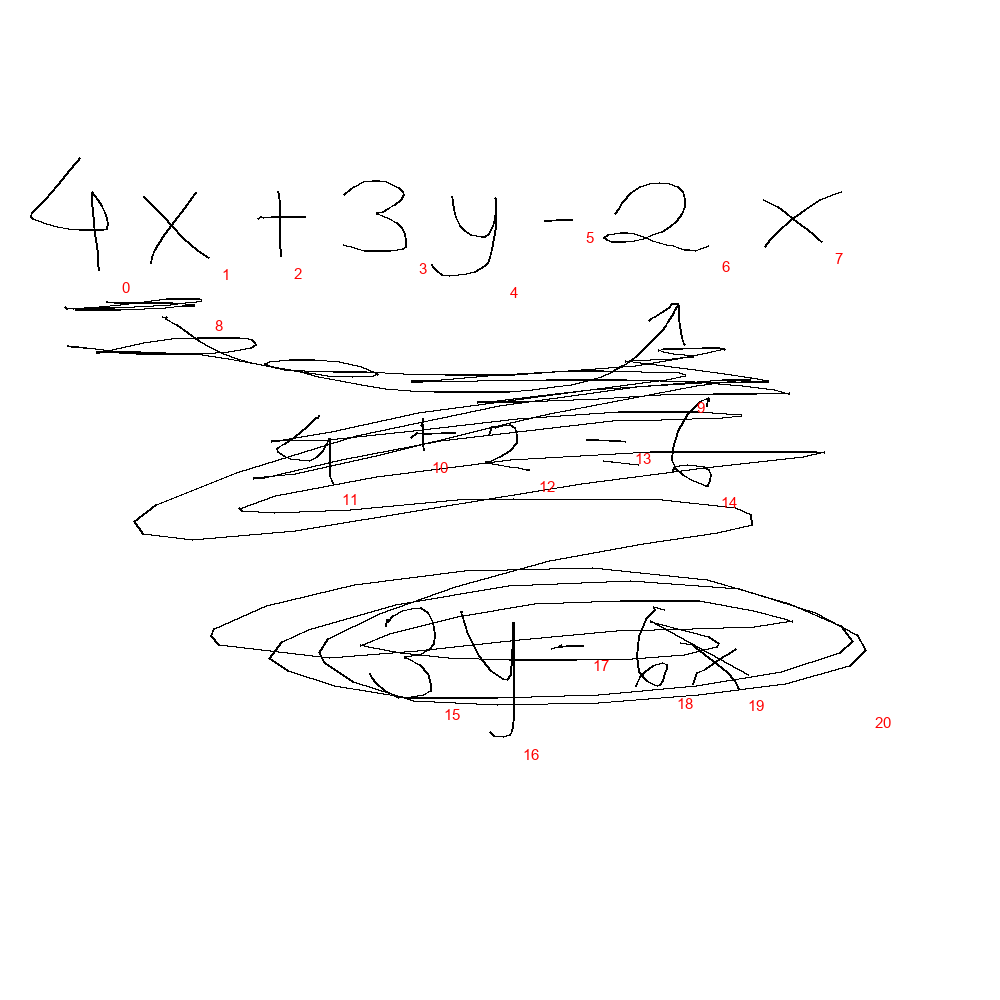 4x+3y-2x
0 1 2 3 4 5 6 7
8
4+2=6
9 10 11 12 13 14
3y-6x
15 16 17 18 19 20